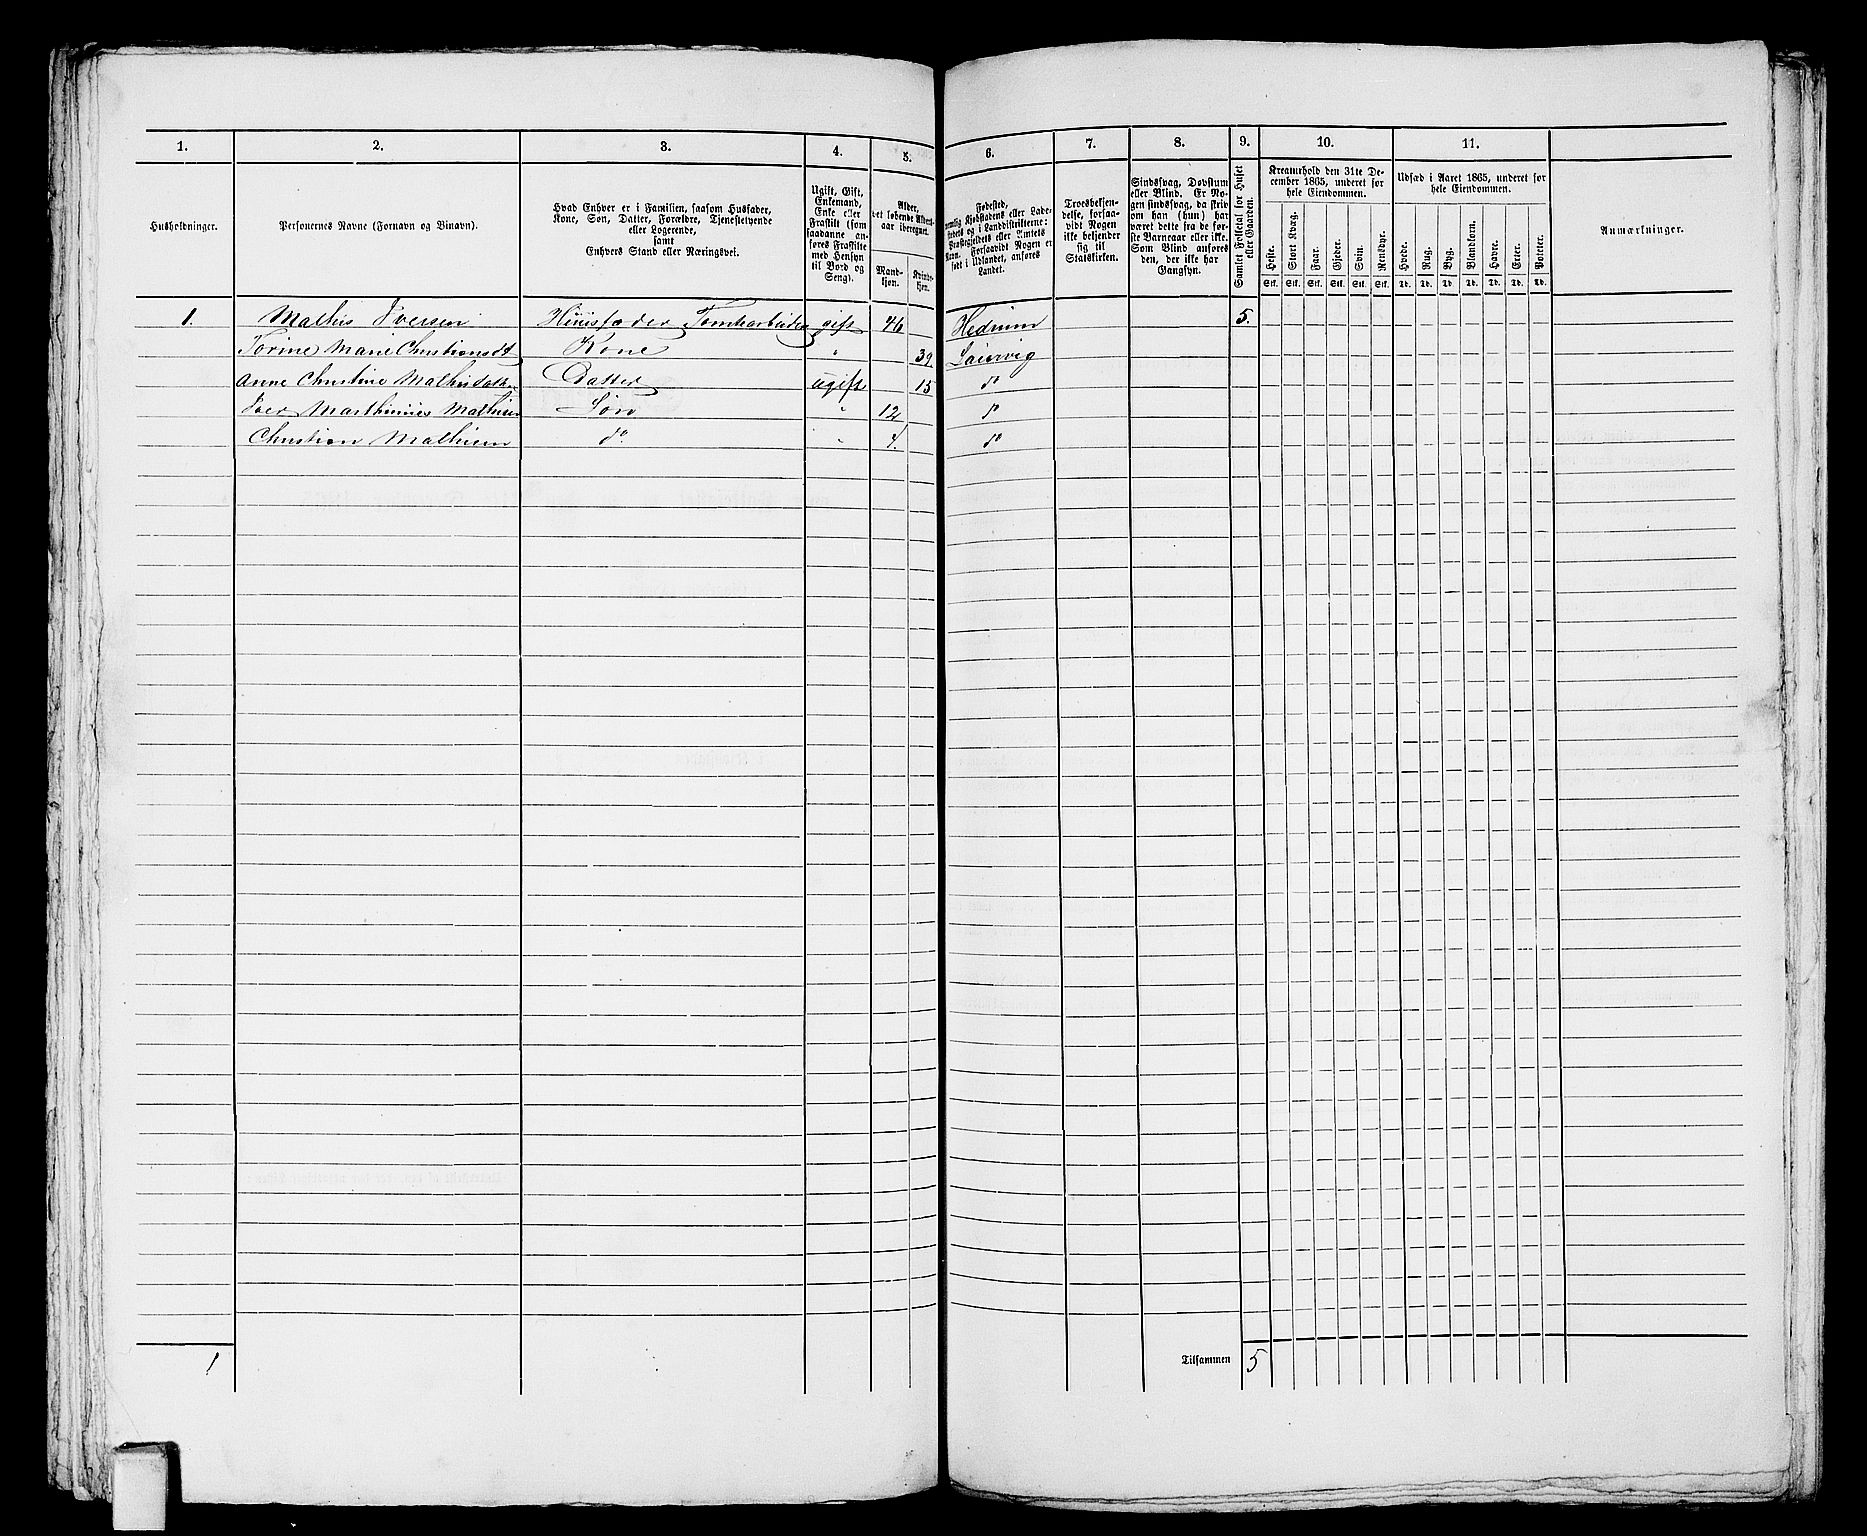 1. 2. 3. 4. 5. 6. 7. 8. 9. 10. 11.
Husholdninger.
Personernes Navne (Fornavn og Binavn).
Hvad Enhver er i Familien, saasom Husfader,
Kone, Søn, Datter, Forældre, Tjenestetyende
eller Logerende,
samt
Enhvers Stand eller Næringsvei.
Ugift, Gift,
Enkemand,
Enke eller
Fraskilt (som
saadanne an-
føres Fraskilte
med Hensyn
til Bord og
Seng).
Alder,
det løbende Alders-
aar iberegnet.
Mand-
kjøn.
Kvinde-
kjøn.
Fødested,
nemlig Kjøbstadens eller Lade-
stedets og i Landdistrikterne:
Præstegjeldets eller Amtets
Navn. Forsaavidt Nogen er
født i Udlandet, anføres
Landet.
Troesbekjen-
delse, forsaa-
vidt Nogen
ikke bekjender
sig til
Statskirken.
Sindssvag, Døvstum
eller Blind. Er No-
gen sindssvag, da skriv
om han (hun) har
været dette fra de før-
ste Barneaar eller ikke.
Som Blind anføres
den, der ikke har
Gangsyn.
Samlet Folketal for Huset
eller Gaarden.
Kreaturhold den 31te De-
cember 1865, underet for
hele Eiendommen.
Heste. Stort Kvæg. Faar. Gjeder. Svin. Rensdyr.
Stk. Stk. Stk. Stk. Stk. Stk.
Udsæd i Aaret 1865, underet for
hele Eiendommen.
Hvede. Rug. Byg. Blandkorn. Havre. Erter. Poteter.
Td. Td. Td. Td. Td. Td. Td.
Anmærkninger.
1. Mathis Iversen Huusfader Tomtearbeider gift 46 Hedrum 5.
Torine Marie Christiansdt Kone " 39 Laurvig
Anne Christine Mathisdatter Datter ugift 15 do
Iver Marthinius Mathisen Søn " 12 do
Christian Mathisen do " 4. do
1 Tilsammen 5